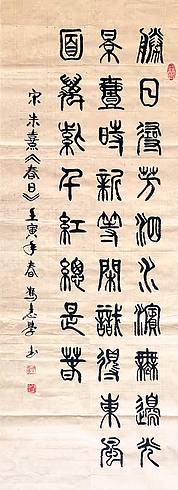 勝日尋芳泗水濱無邊光
景壹時新等閒識得東風
面萬紫千紅總是春
宋朱熹《春日》壬寅年春
书